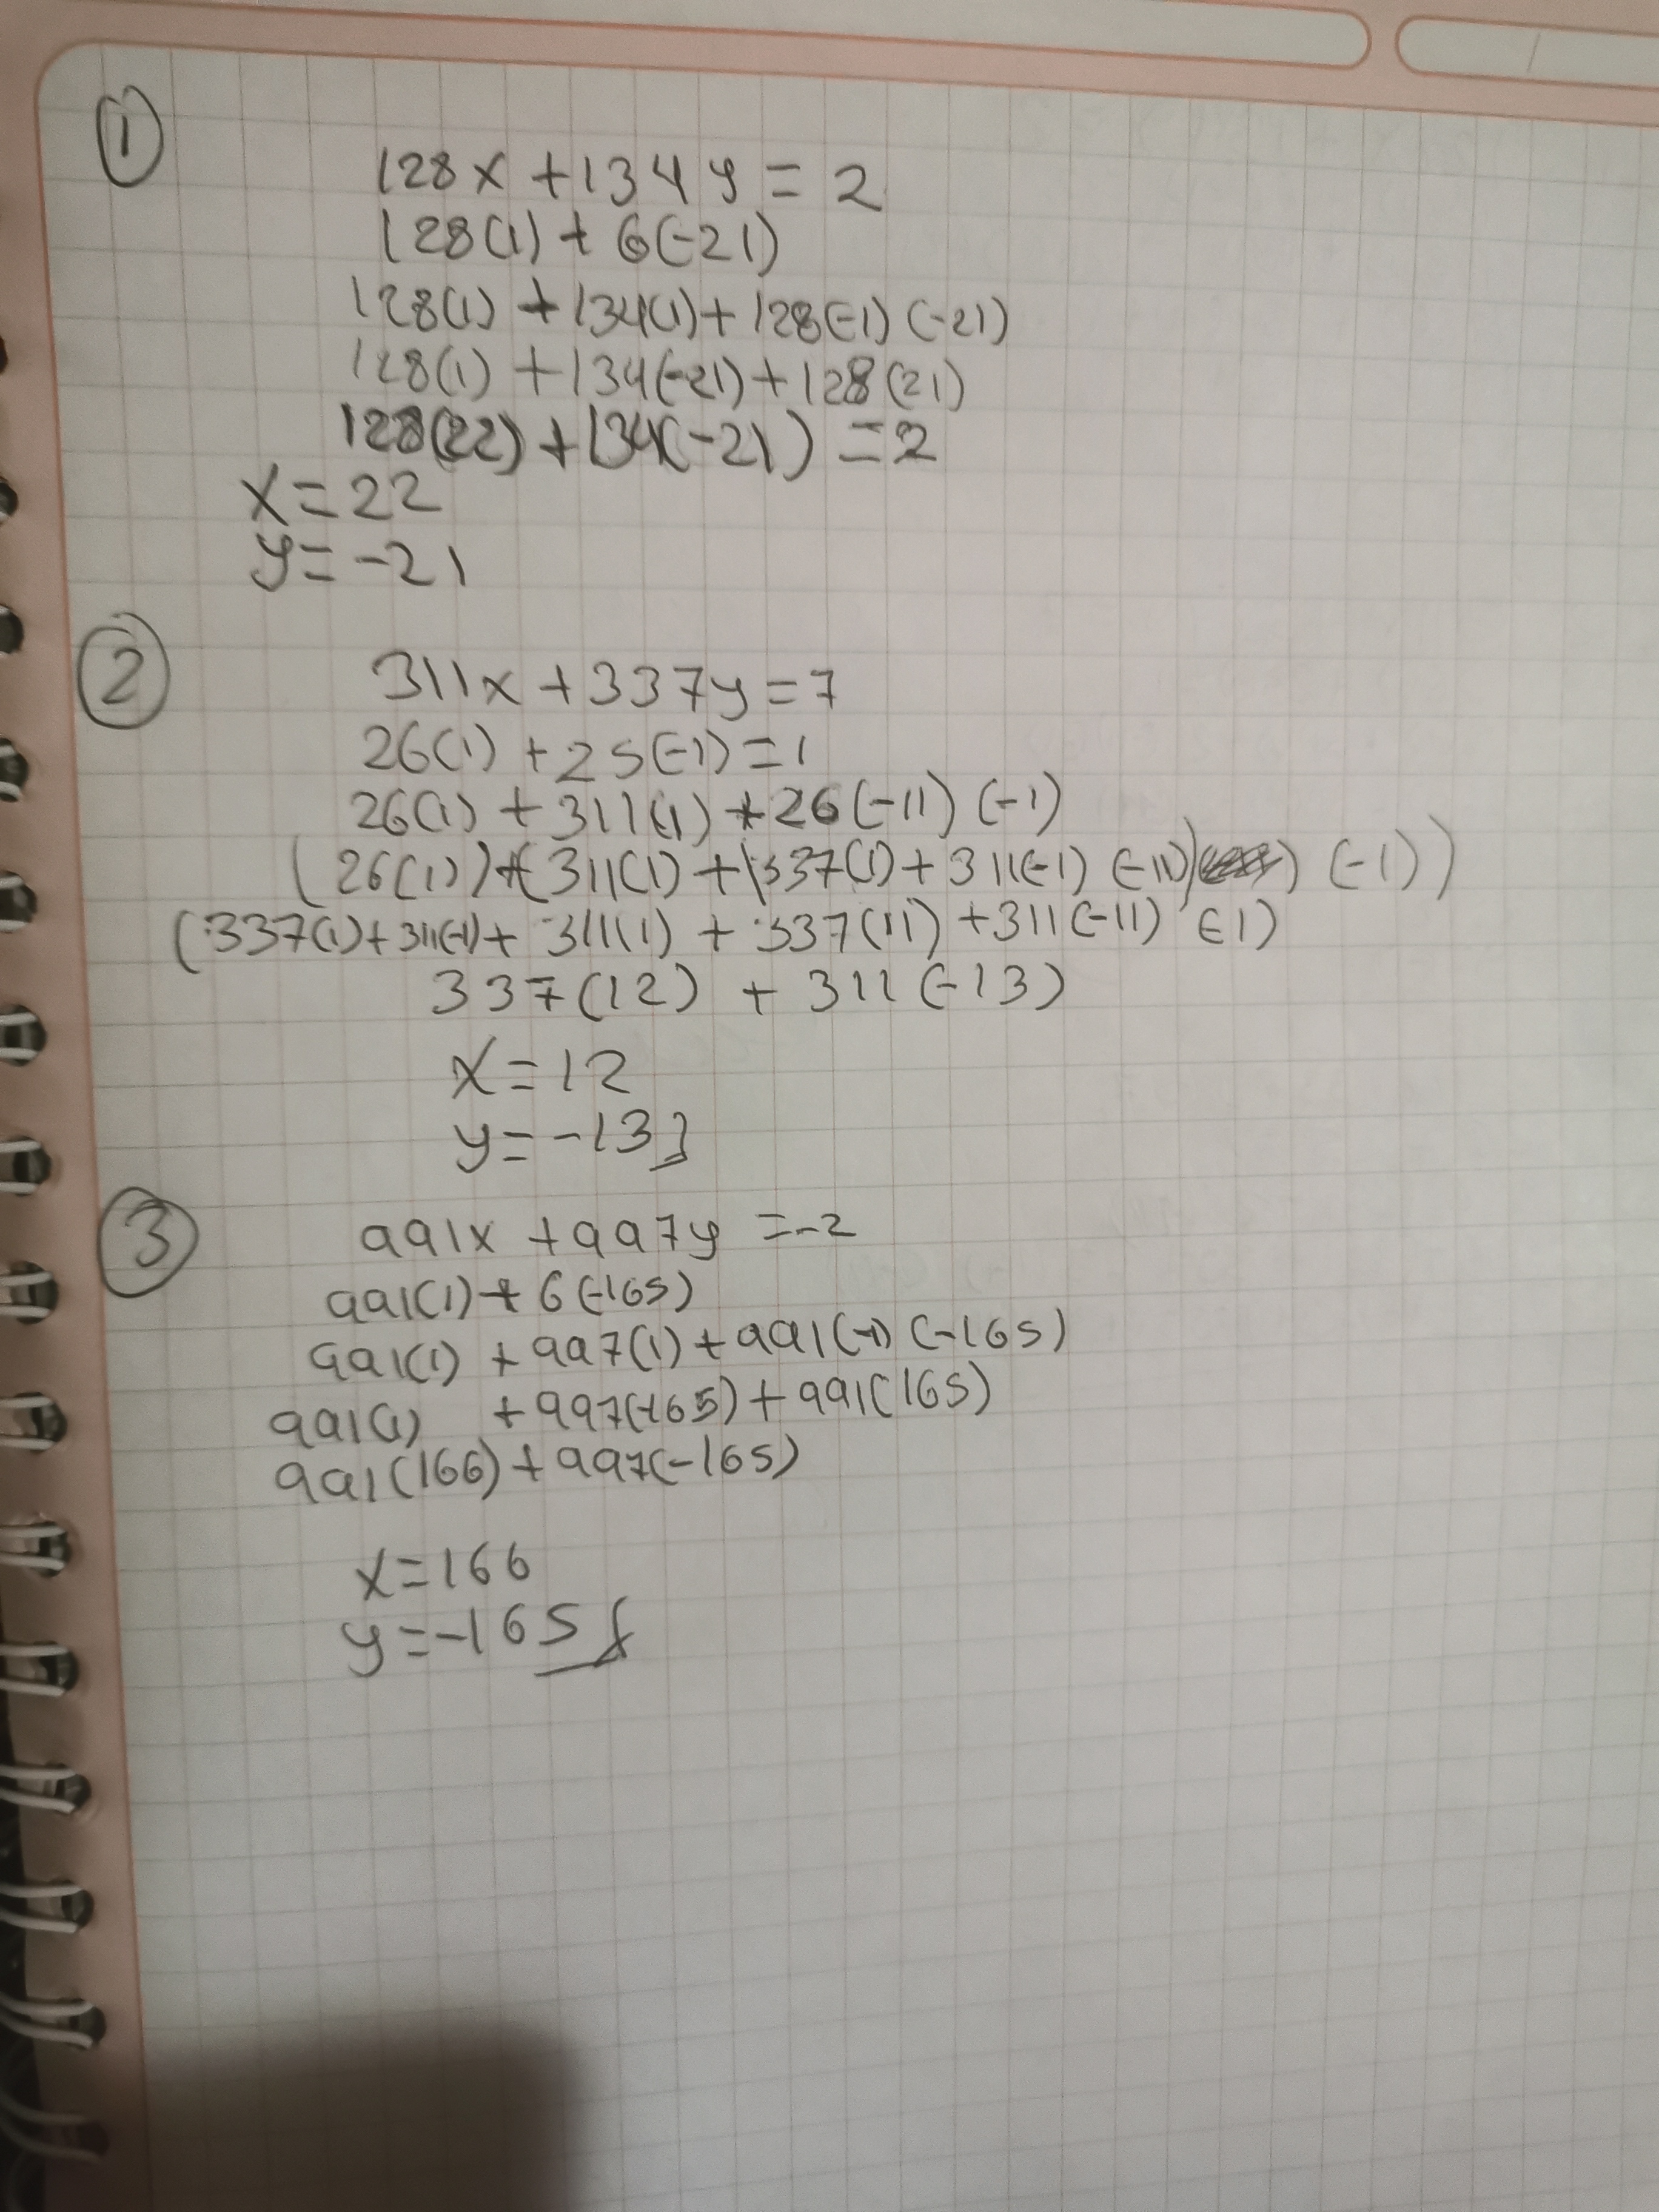 1
128x + 134y = 2
128(1) + 6(-21)
128(1) + 134(1) + 128(-1) (-21)
128(1) + 134(-21) + 128(21)
128(22) + 134(-21) = 2
x = 22
y = -21
2
311x + 337y = 7
26(1) + 25(-1) = 1
26(1) + 311(1) + 26(-11) (-1)
(26(1)) + (311(1) + (337(1) + 311(-1) (-11)) (-1))
(337(1) + 311(-1) + 311(1) + 337(11) + 311(-11) (-1)
337(12) + 311(-13)
x = 12
y = -13
3
991x + 997y = -2
991(1) + 6(-165)
991(1) + 997(1) + 991(-1) (-165)
991(1) + 997(-165) + 991(165)
991(166) + 997(-165)
x = 166
y = -165